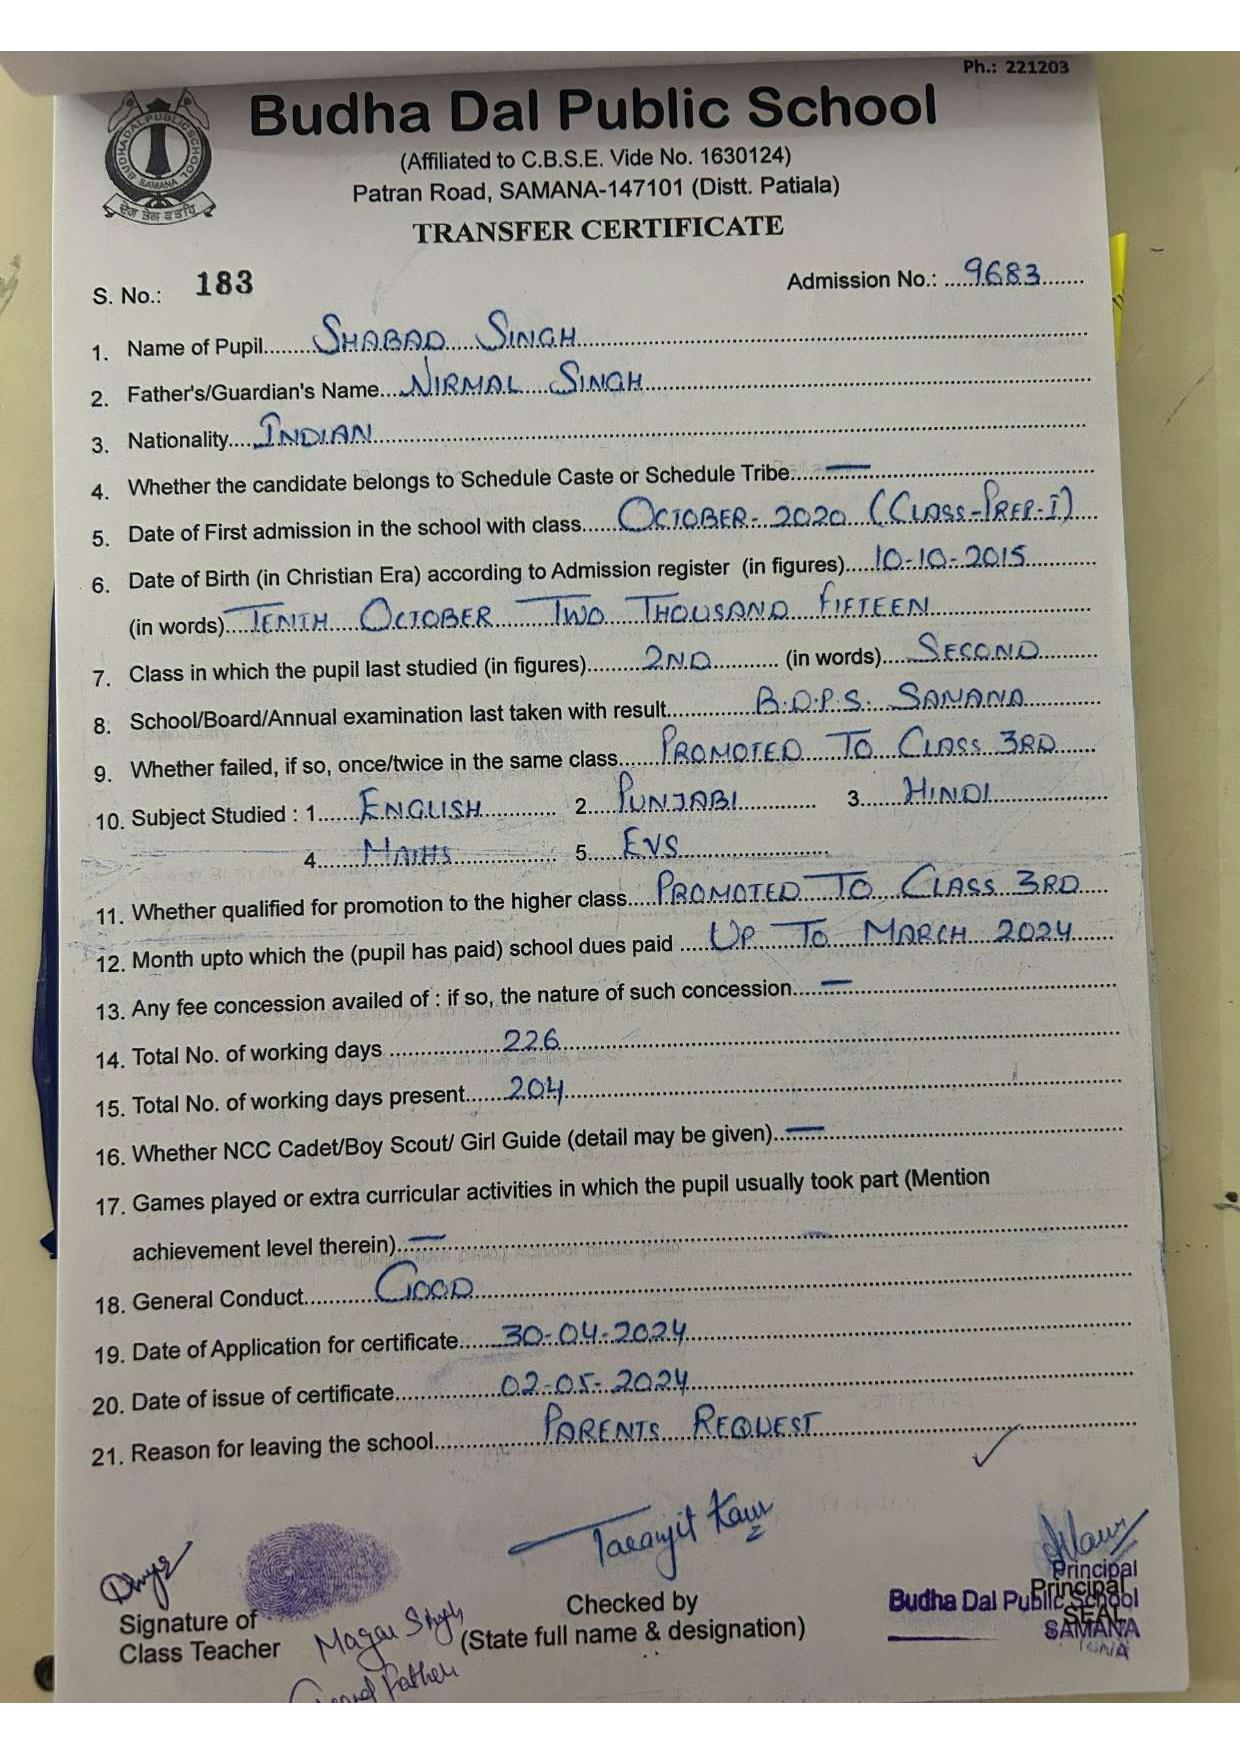 Ph.: 221203
Budha Dal Public School
(Affiliated to C.B.S.E. Vide No. 1630124)
Patran Road, SAMANA-147101 (Distt. Patiala)
TRANSFER CERTIFICATE
BUDHA DAL PUBLIC SCHOOL
SAMANA
ਦੇਗ ਤੇਗ ਫਤਹਿ
S. No.: 183 Admission No.: 9683
1. Name of Pupil SHABAD SINGH
2. Father's/Guardian's Name NIRMAL SINGH
3. Nationality INDIAN
4. Whether the candidate belongs to Schedule Caste or Schedule Tribe —
5. Date of First admission in the school with class OCTOBER- 2020 (CLASS-PREP-I)
6. Date of Birth (in Christian Era) according to Admission register (in figures) 10-10-2015
(in words) TENTH OCTOBER TWO THOUSAND FIFTEEN
7. Class in which the pupil last studied (in figures) 2ND (in words) SECOND
8. School/Board/Annual examination last taken with result B.D.P.S. SAMANA
9. Whether failed, if so, once/twice in the same class PROMOTED TO CLASS 3RD
10. Subject Studied : 1. ENGLISH 2. PUNJABI 3. HINDI
4. MATHS 5. EVS
11. Whether qualified for promotion to the higher class PROMOTED TO CLASS 3RD
12. Month upto which the (pupil has paid) school dues paid UP TO MARCH 2024
13. Any fee concession availed of : if so, the nature of such concession —
14. Total No. of working days 226
15. Total No. of working days present 204
16. Whether NCC Cadet/Boy Scout/ Girl Guide (detail may be given) —
17. Games played or extra curricular activities in which the pupil usually took part (Mention
achievement level therein) —
18. General Conduct GOOD
19. Date of Application for certificate 30-04-2024
20. Date of issue of certificate 02-05-2024
21. Reason for leaving the school PARENTS REQUEST
Taranjit Kaur
Signature of
Class Teacher
Magar Singh
Grand Father
Checked by
(State full name & designation)
Principal
Principal
Budha Dal Public School
SEAL
SAMANA